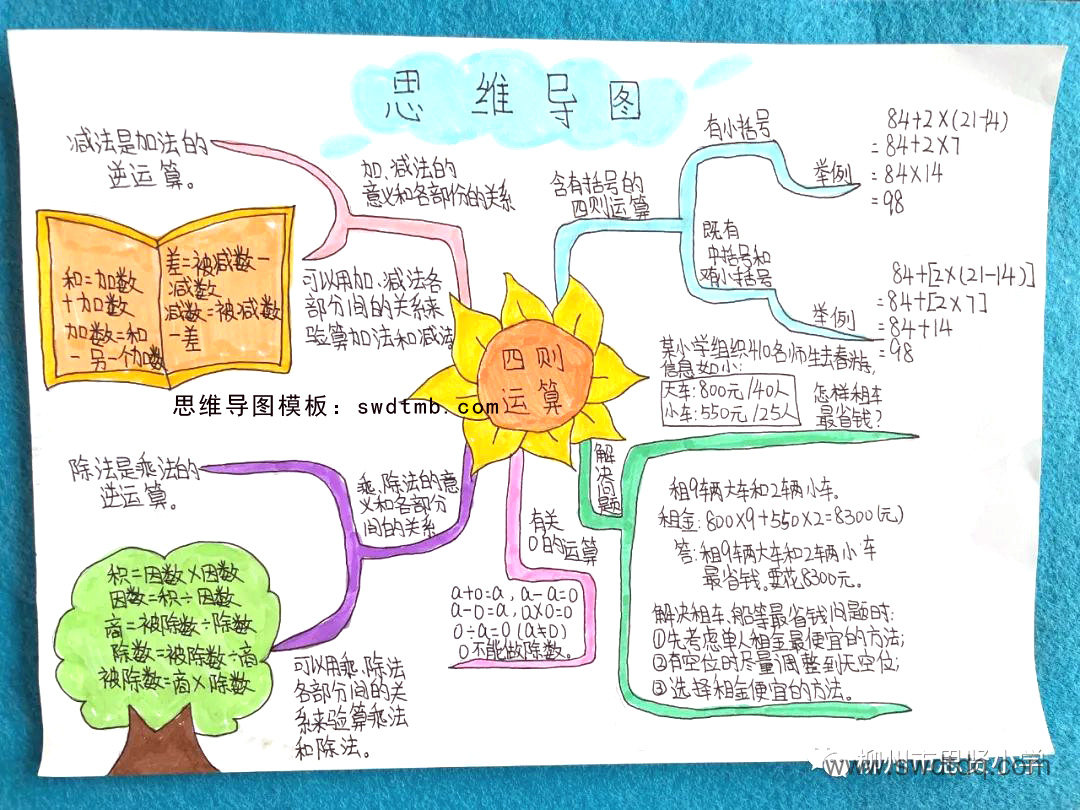 思维导图
减法是加法的
逆运算。
加、减法的
意义和各部份的关系
可以用加、减法各
部分间的关系来
验算加法和减法
和=加数
+加数
加数=和
-另一个加数
差=被减数-
减数
减数=被减数
-差
含有括号的
四则运算
有小括号
举例
84+2×(21-14)
=84+2×7
=84×14
=98
既有
中括号和
有小括号
举例
84+[2×(21-14)]
=84+[2×7]
=84+14
=98
四则
运算
思维导图模板：swdtmb.com
某小学组织410名师生去春游，
信息如小：
大车：800元/40人
小车：550元/25人
怎样租车
最省钱？
解决问题
租9辆大车和2辆小车。
租金：800×9+550×2=8300(元)
答：租9辆大车和2辆小车
最省钱。要花8300元。
解决租车、船等最省钱问题时：
①先考虑单人租金最便宜的方法；
②有空位时尽量调整到无空位；
③选择租金便宜的方法。
除法是乘法的
逆运算。
乘、除法的意
义和各部分
间的关系
积=因数×因数
因数=积÷因数
商=被除数÷除数
除数=被除数÷商
被除数=商×除数
可以用乘、除法
各部分间的关
系来验算乘法
和除法。
有关
0的运算
a+0=a，a-a=0
a-0=a，a×0=0
0÷a=0(a≠0)
0不能做除数。
柳州市思贤小学
www.swdtdq.com